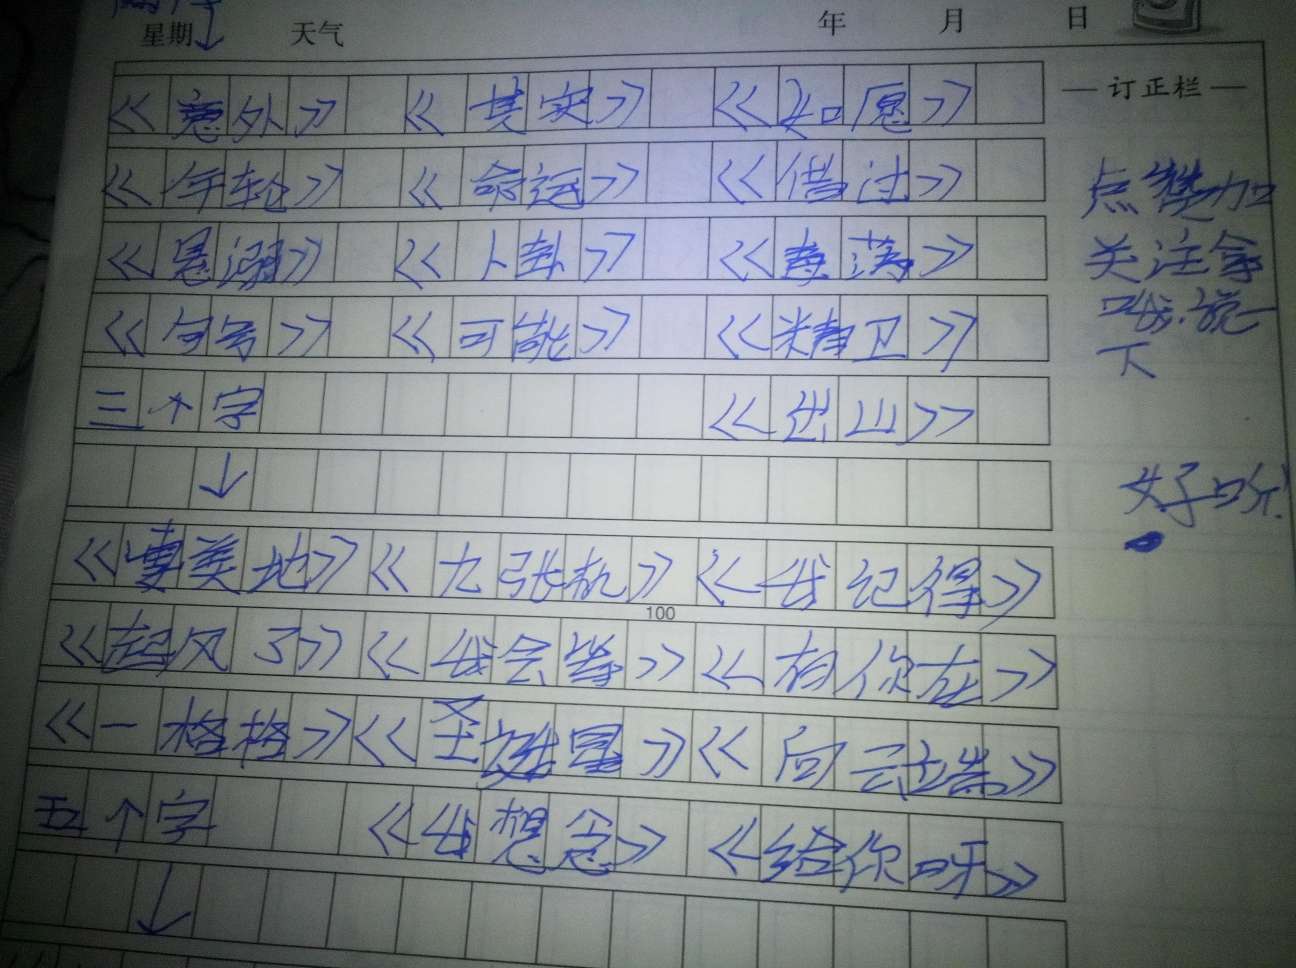 星期 天气 年 月 日
订正栏
《意外》 《其实》 《如愿》
《年轮》 《命运》 《借过》
《卜卦》
《句号》 《可能》 《精卫》
三个字 《出山》
《九张机》 《我记得》
《起风了》 《我会等》 《有你在》
100
《一格格》 《圣诞星》 《向云端》
五个字 《我想念》 《给你呀》
点赞加
关注拿
下
好哦